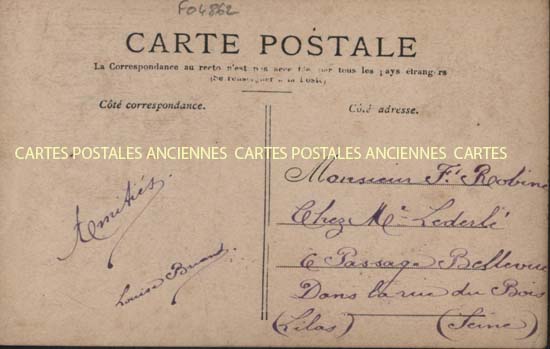 F04862
CARTE POSTALE
La Correspondance au recto n'est pas acceptée par tous les pays étrangers
(Se renseigner à la Poste)
Côté correspondance.
Côté adresse.
CARTES POSTALES ANCIENNES CARTES POSTALES ANCIENNES CARTES
Amitiés.
Louise
Monsieur Fd Robin
Chez Mr Lederlé
6 Passage Bellevue
Dans la rue du Bois
(Lilas) (Seine)